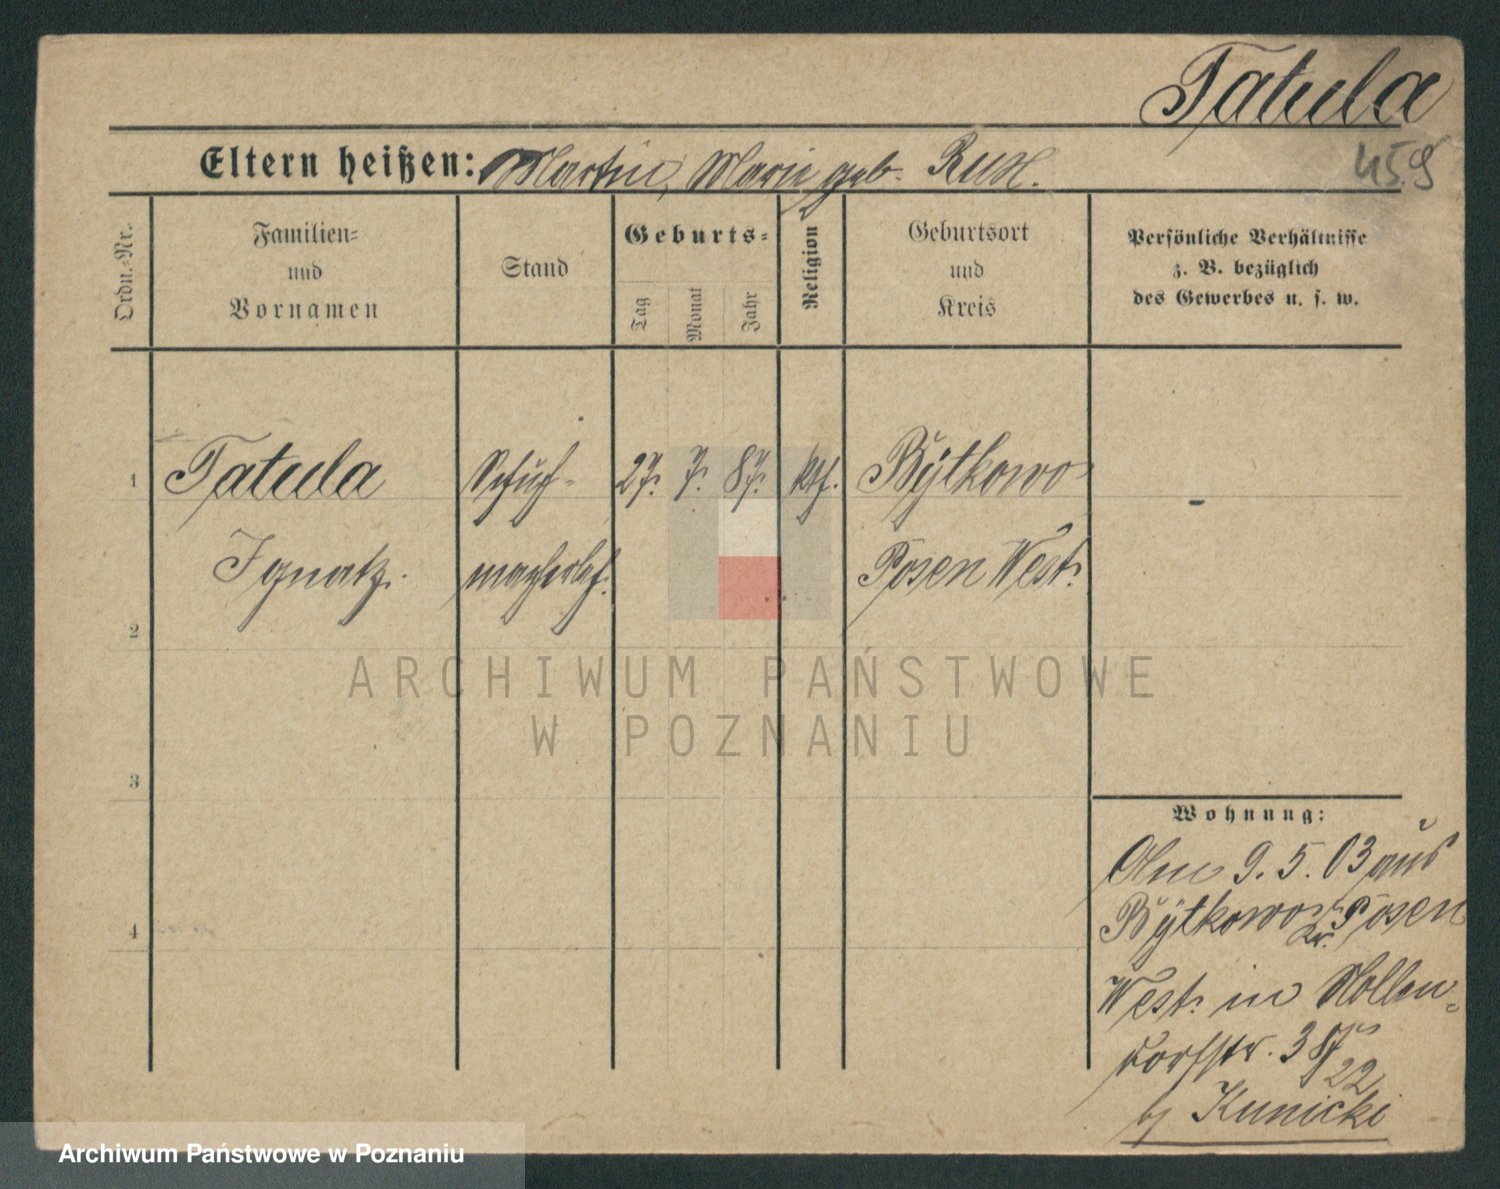 Tatula
459
Eltern heißen: Martin, Marie geb. Rux.
Ordn.-Nr.
Familien-
und
Vornamen
Stand
Geburts-
Tag
Monat
Jahr
Religion
Geburtsort
und
Kreis
Persönliche Verhältnisse
z. B. bezüglich
des Gewerbes u. s. w.
1 Tatula Schuh- 27. 7. 87. kth. Bytkowo -
Ignatz. macherlehrl. Posen West.
2
3
4
ARCHIWUM PAŃSTWOWE
W POZNANIU
Wohnung:
Am 9. 5. 03 aus
Bytkowo Kr. Posen
West. in Mollen-
dorfstr.
22
b/ Kunicki
Archiwum Państwowe w Poznaniu